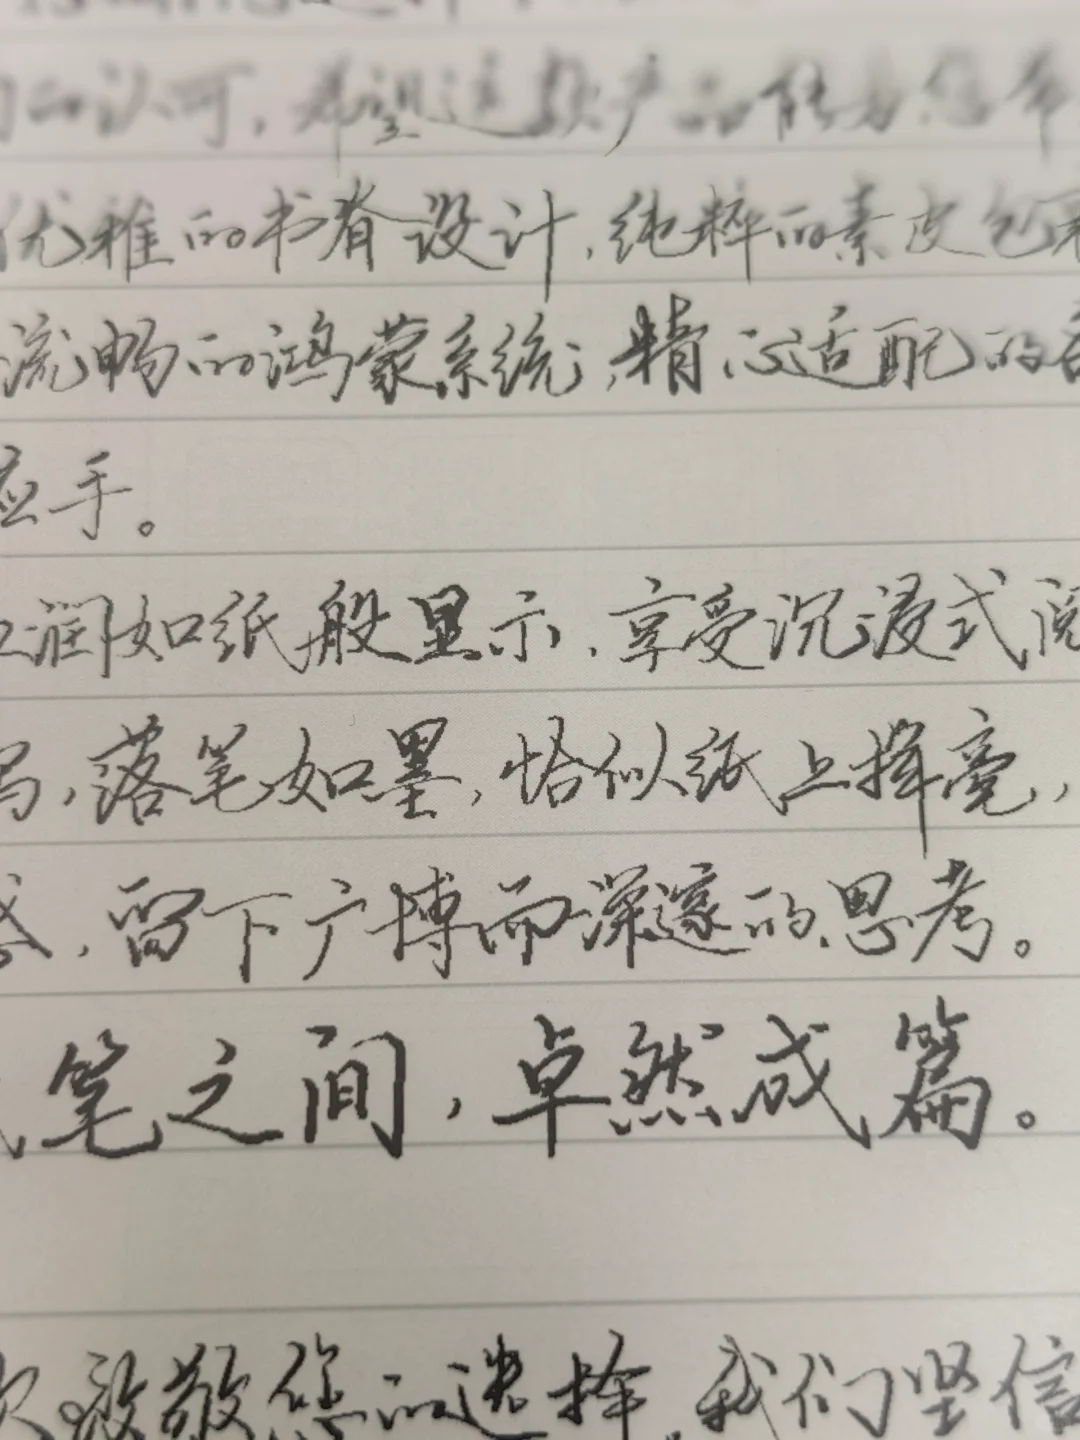 的认可，希望这款产品能为您带
优雅的书脊设计，纯粹的素皮包裹
流畅的鸿蒙系统，精心适配的
应手。
润如纸般显示，享受沉浸式阅
写，落笔如墨，恰似纸上挥毫，
感，留下广博而深邃的思考。
笔之间，卓然成篇。
次致敬您的选择，我们坚信